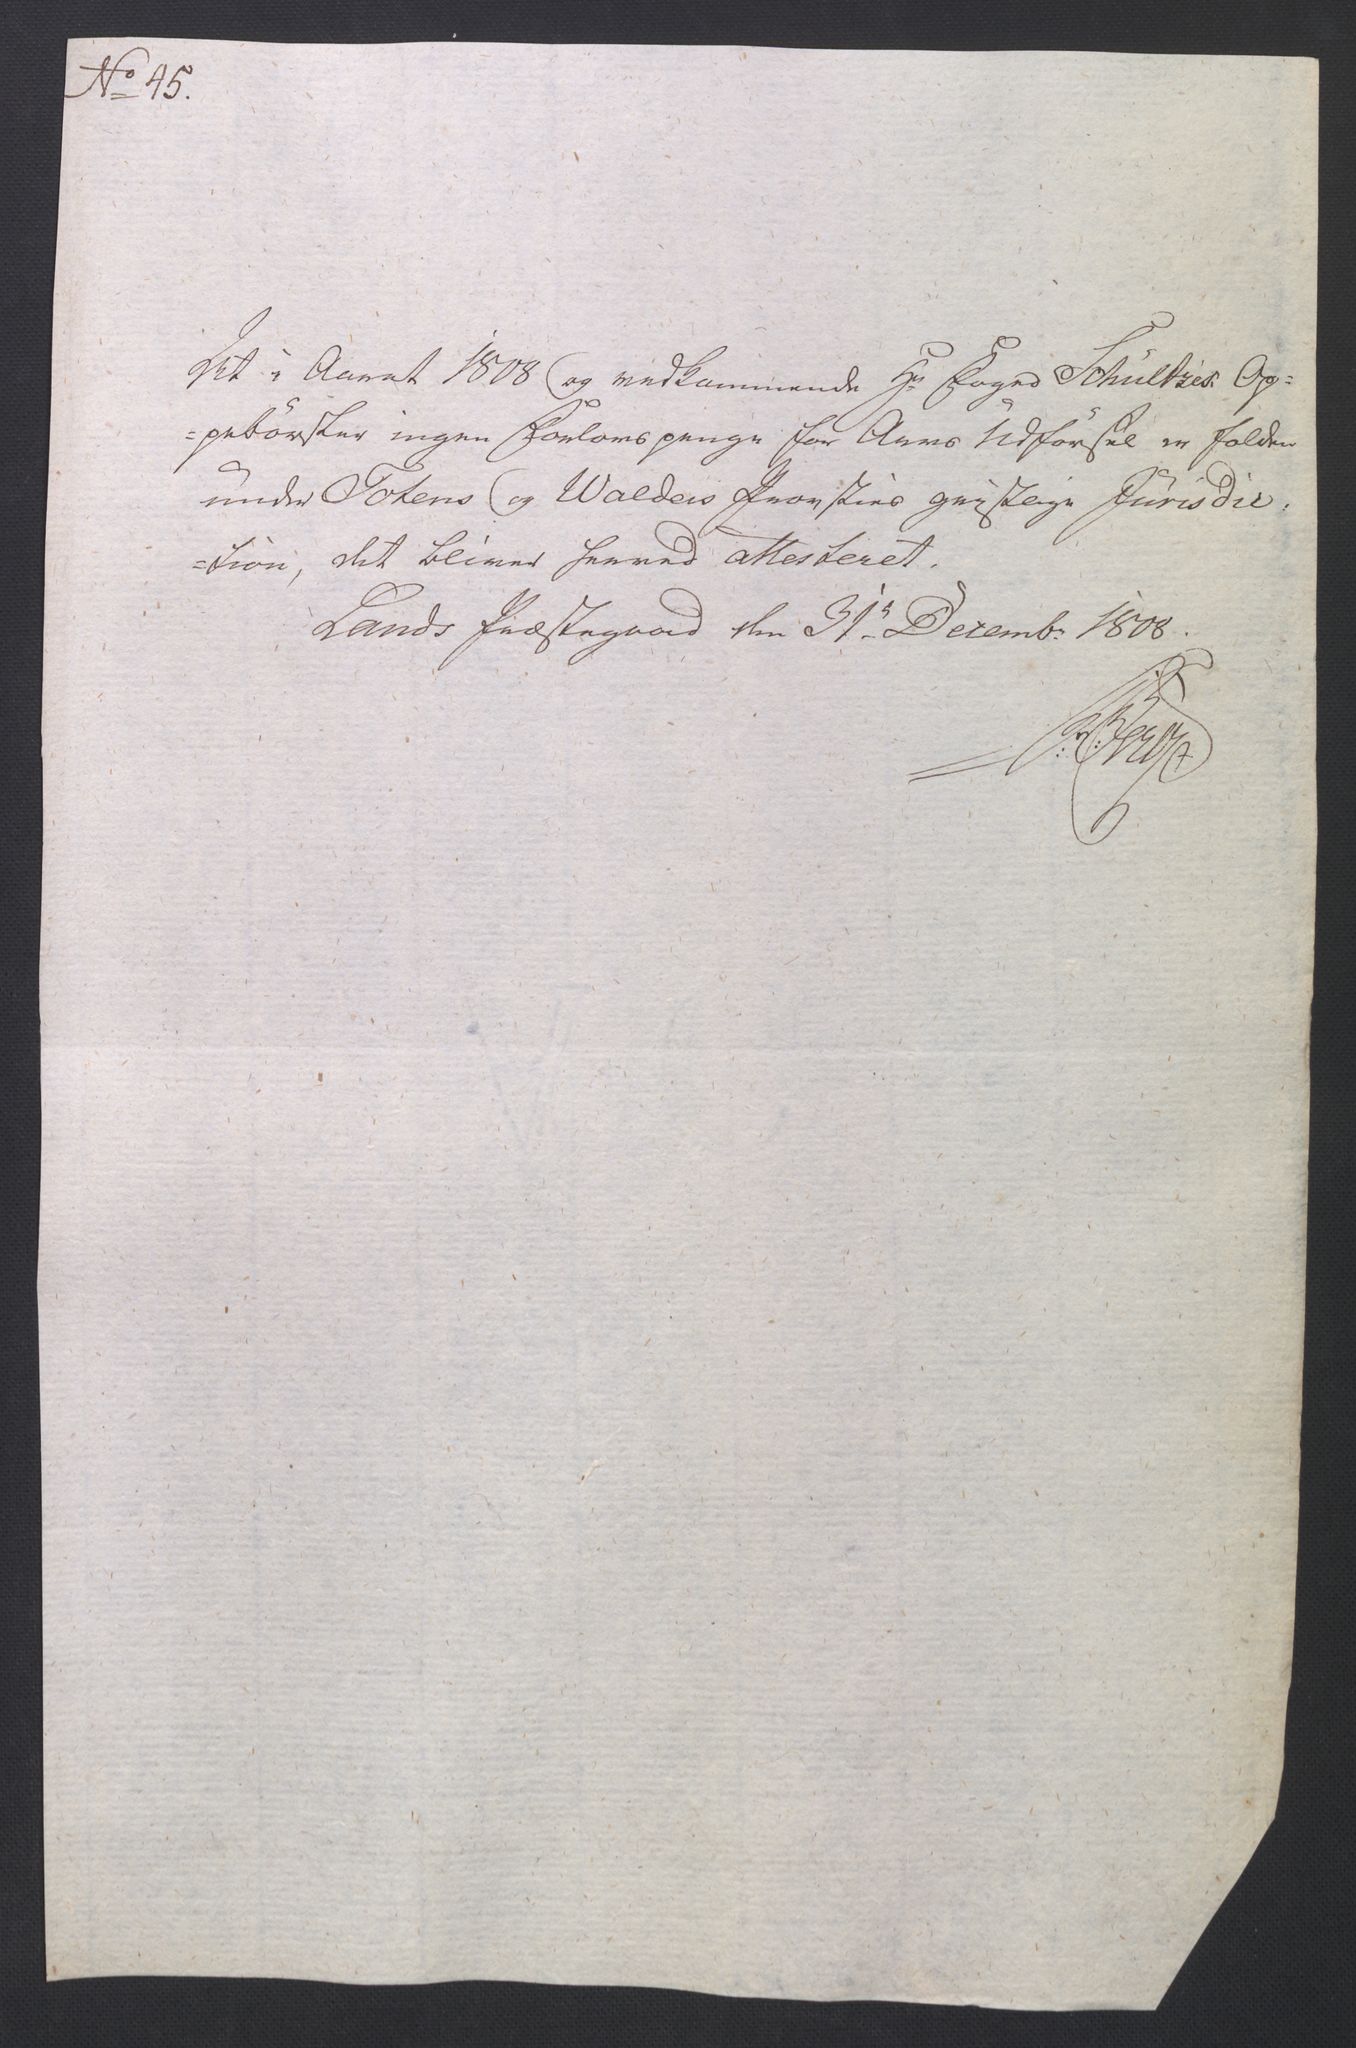 No 45.
At i Aaret 1808 og vedkommende Hr Foged Schültzes Op=
=pebörsler ingen Forlovspenge for Arvs Udförsel er falden
under Totens og Walders Provsties geistlige Jürisdic=
=tion, det bliver herved attesteret.
Lands Præstegaard den 31te Decembr 1808.